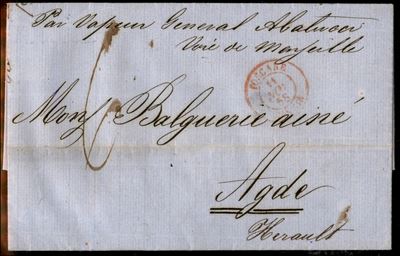 Par Vapeur General Abatucci
Voie de Marseille
TOSCANE
Mons Balguerie ainé
Agde
Herault